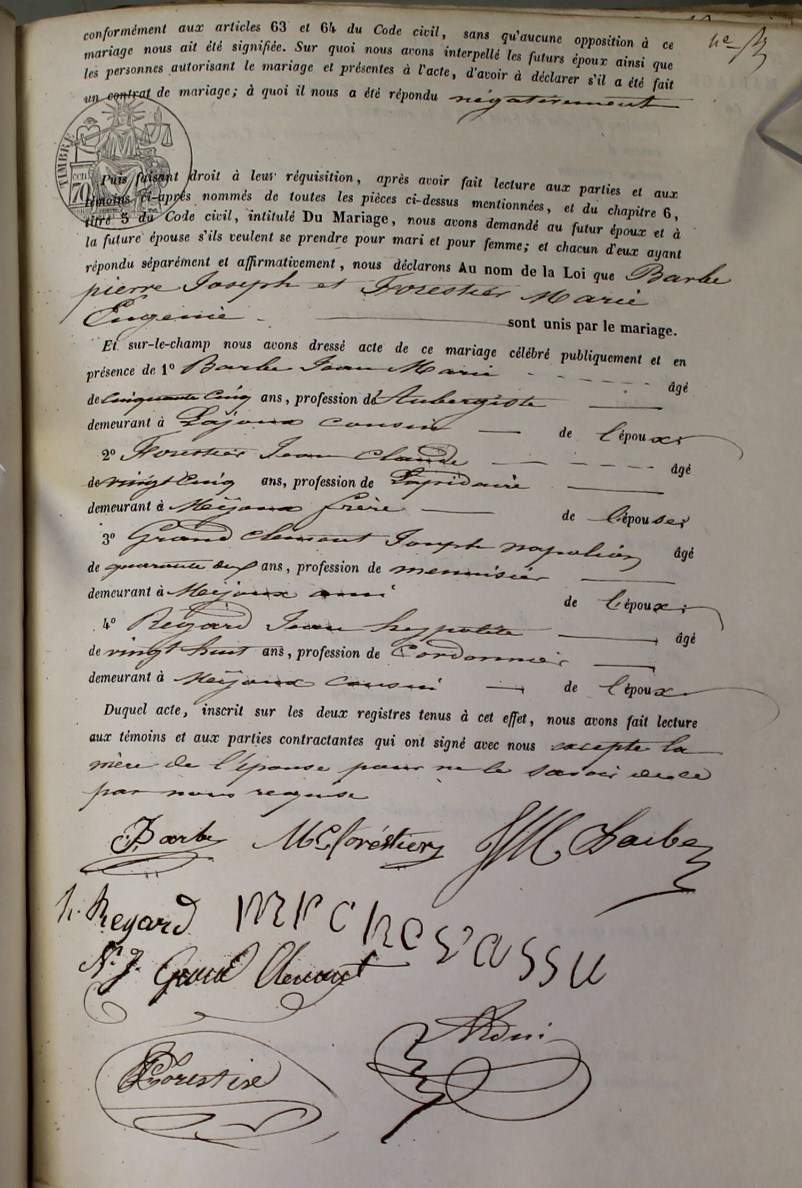 conformément aux articles 63 et 64 du Code civil, sans qu'aucune opposition à ce
mariage nous ait été signifiée. Sur quoi nous avons interpellé les futurs époux ainsi que
les personnes autorisant le mariage et présentes à l'acte, d'avoir à déclarer s'il a été fait
un contrat de mariage; à quoi il nous a été répondu négativement
TIMBRE
70 cen
Puis faisant droit à leur réquisition, après avoir fait lecture aux parties et aux
témoins ci-après nommés de toutes les pièces ci-dessus mentionnées, et du chapitre 6,
titre 5 du Code civil, intitulé Du Mariage, nous avons demandé au futur époux et à
la future épouse s'ils veulent se prendre pour mari et pour femme; et chacun d'eux ayant
répondu séparément et affirmativement, nous déclarons Au nom de la Loi que Barbe
pierre Joseph et Forestier Marie
Eugenie sont unis par le mariage.
Et sur-le-champ nous avons dressé acte de ce mariage célébré publiquement et en
présence de 1° Barbe Jean Marie âgé
de cinquante cinq ans, profession de Aubergiste
demeurant à Lajoux cousin de l'époux
2° Forestier Jean Claude âgé
de vingt cinq ans, profession de Lapidaire
demeurant à Mijoux frère de l'épouse
3° Grand Clement Joseph napoléon âgé
de quarante deux ans, profession de menuisier
demeurant à Mijoux ami de l'époux
4° Regard Jean hypolite âgé
de vingt huit ans, profession de Cordonnier
demeurant à Mijoux cousin de l'époux
Duquel acte, inscrit sur les deux registres tenus à cet effet, nous avons fait lecture
aux témoins et aux parties contractantes qui ont signé avec nous excepte la
mère de l'épouse pour ne le savoir de ce
par nous requise
J Barbe Me forestier JM Barbe
h. Regard
N. J. Grand Clement
Forestier